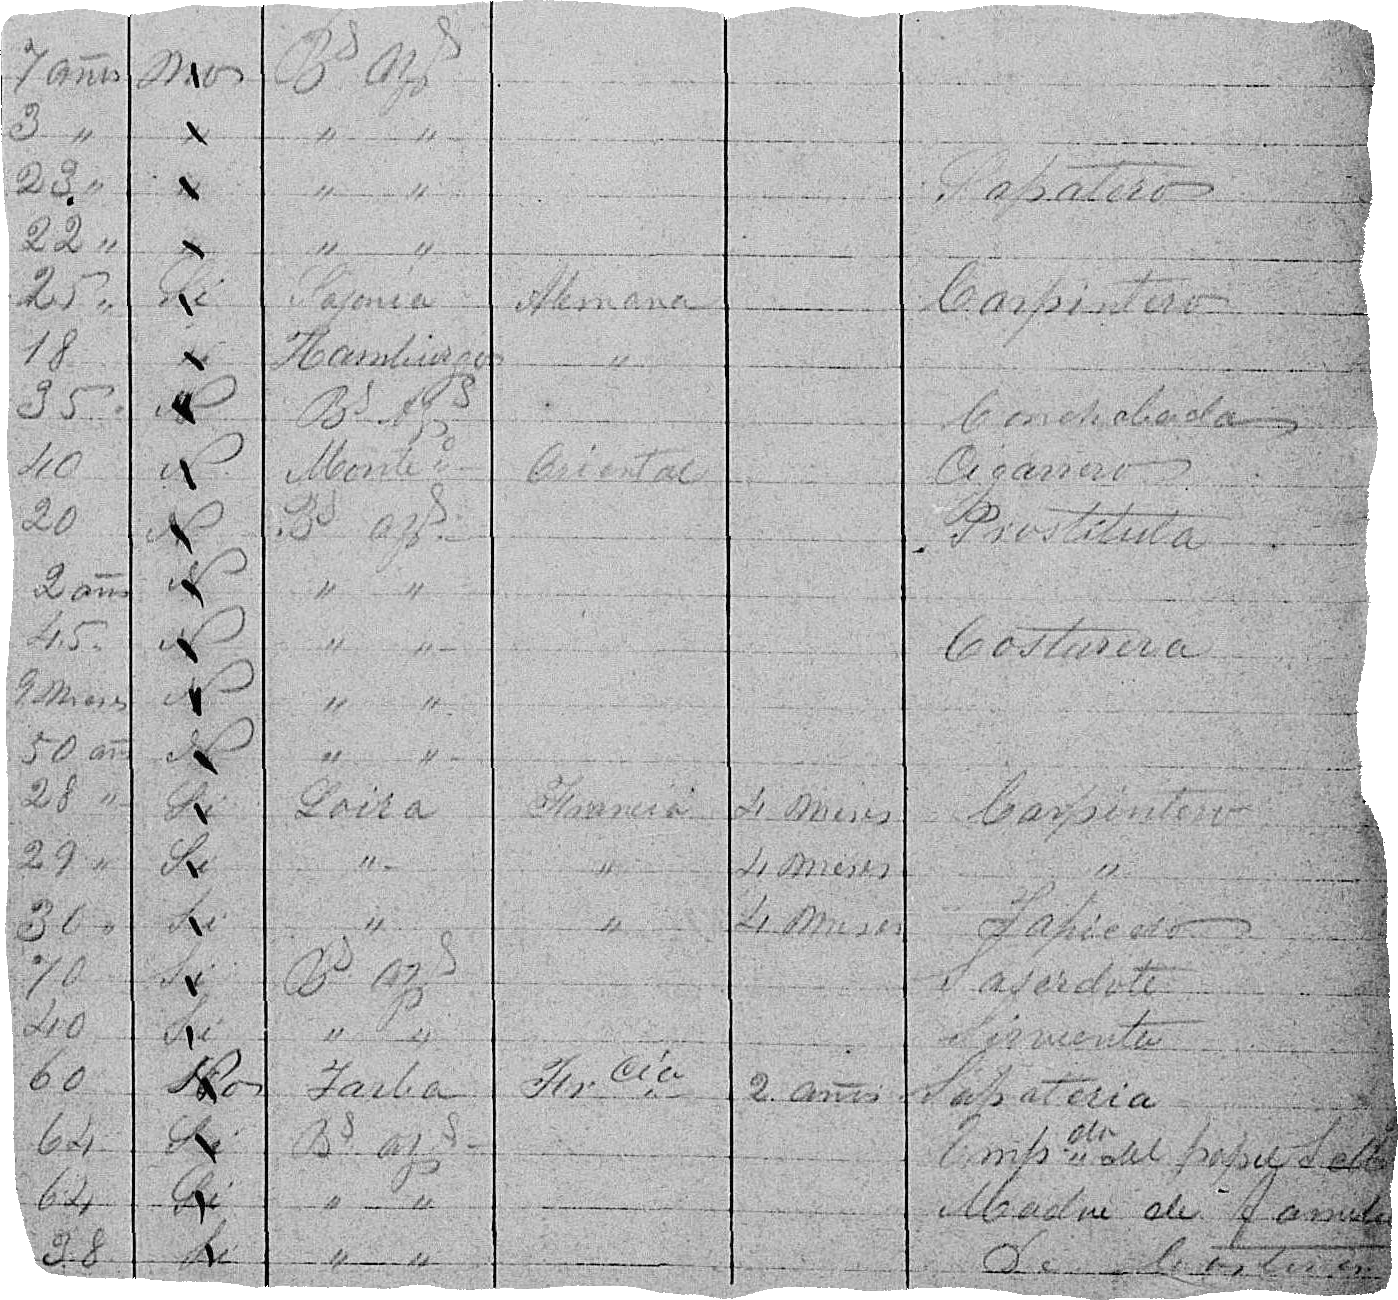 7 años No Bs Ays
3 " " "
23 " " " Sapatero
22 " " "
25 " Si Sajonia Alemana Carpintero
18 Si Hamburgo "
35 N Bs Ays Conchabada
40 N Monteo Oriental Cigarrero
20 N Bs Ays Prostituta
2 años N " "
45 N " " Costurera
9 Meses N " "
50 añ N " "
28 " Si Loira Francia 4 Meses Carpintero
29 " Si " " 4 Meses "
30 " Si " " 4 Meses
70 Si Bs Ays Saserdote
40 Si " " Sirvienta
60 No Tarba Frcia 2 años Sapateria
64 Si Bs Ays Empdo del papel Sell
64 Si " " Madre de famili
38 Si " " De